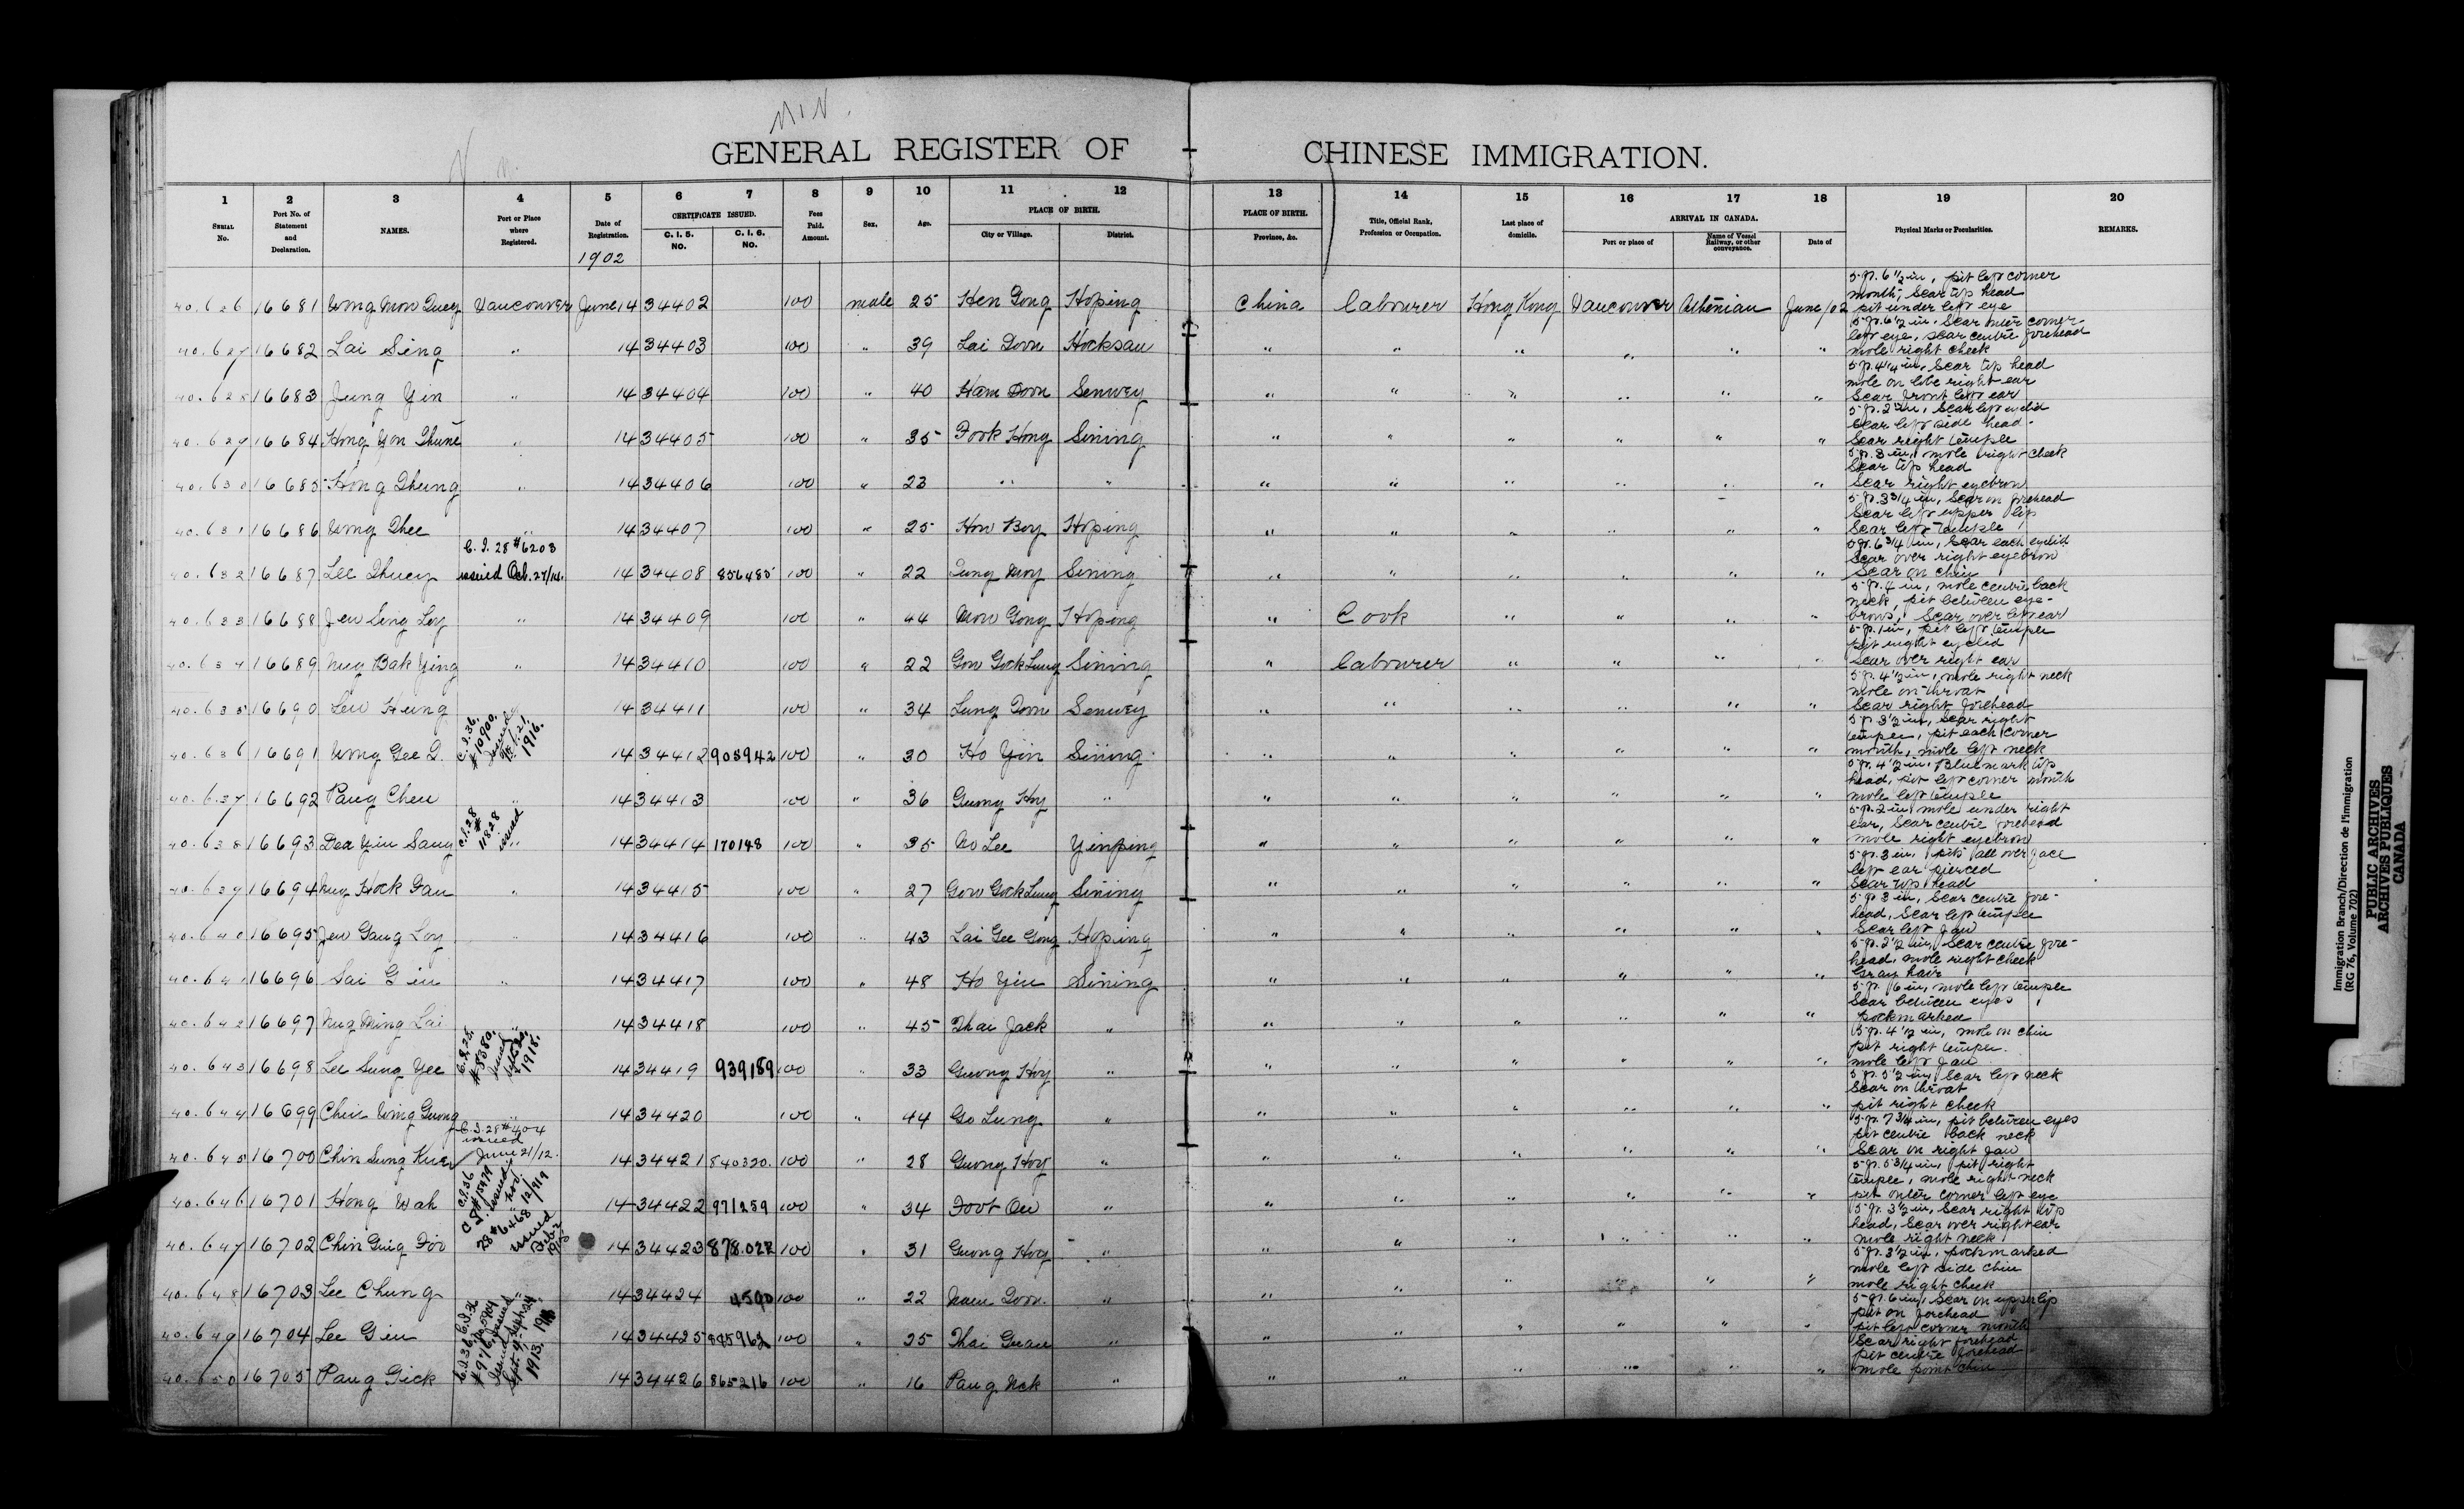 GENERAL REGISTER OF CHINESE IMMIGRATION.
1 2 3 4 5 6 7 8 9 10 11 12 13 14 15 16 17 18 19 20
SERIAL No. Port No. of Statement and Declaration. NAMES. Port or Place where Registered. Date of Registration. CERTIFICATE ISSUED. C. I. 5. NO. C. I. 6. NO. Fees Paid. Amount. Sex. Age. PLACE OF BIRTH. City or Village. District. PLACE OF BIRTH. Province, &c. Title, Official Rank, Profession or Occupation. Last place of domicile. ARRIVAL IN CANADA. Port or place of Name of Vessel Railway, or other conveyance. Date of Physical Marks or Peculiarities. REMARKS.
1902
40.626 16681 Wong Mon Quey Vancouver June 14 34402 100 male 25 Hen Gong Hoping China Labourer Hong Kong Vancouver Athenian June/02 5 ft. 6 1/2 in, pit left corner
mouth, Scar top head
pit under left eye
40.627 16682 Lai Sing " 14 34403 100 " 39 Lai Doon Hocksan " " " " " " 5 ft. 6 1/2 in. Scar outer corner
left eye, scar centre forehead
mole right cheek
40.628 16683 Jung Yin " 14 34404 100 " 40 Ham Doon Senwey " " " " " " 5 ft. 4 1/4 in, Scar top head
mole on lobe right ear
Scar front left ear
40.629 16684 Hong Yon " 14 34405 100 " 35 Fook Hong Sining " " " " " " 5 ft. 2 in, Scar left eyelid
Scar left side head
Scar right temple
40.630 16685 Hong " 14 34406 100 " 23 " " " " " " " " 5 ft. 3 in, mole right cheek
Scar top head
Scar right eyebrow
40.631 16686 Wong " 14 34407 100 " 25 How Boy Hoping " " " " " " 5 ft. 3 3/4 in, Scar on forehead
Scar left upper lip
Scar left temple
40.632 16687 Lee C. I. 28 #6208 issued Oct. 27/14. 14 34408 856485 100 " 22 Sining " " " " " " 5 ft. 6 3/4 in, Scar each eyelid
Scar over right eyebrow
Scar on chin
40.633 16688 Jew Sing Loy " 14 34409 100 " 44 Mow Gong Hoping " Cook " " " " 5 ft. 4 in, mole centre back
neck, pit between eye-
brows, Scar over left ear
40.634 16689 Mug Bak Ying " 14 34410 100 " 22 Gow Gock Lung Sining " Labourer " " " " 5 ft. 1 in, pit left temple
pit right eyelid
Scar over right ear
40.635 16690 Lew Heung 14 34411 100 " 34 Lung Doon Senwey " " " " " " 5 ft. 4 1/2 in, mole right neck
mole on throat
Scar right forehead
40.636 16691 Wong Gee G. C.I.36. #10900. Issued 21. 1916. 14 34412 908942 100 " 30 Ho Yin Sining " " " " " " 5 ft. 3 1/2 in, scar right
temper, pit each corner
mouth, mole left neck
40.637 16692 Pang Chew " 14 34413 100 " 36 Guong Hoy " " " " " " " 5 ft. 4 1/2 in. Blue mark top
head, pit left corner mouth
mole left temple
40.638 16693 Dea Yin Sang C.I.28 # 11828 issued 14 34414 170148 100 " 35 Wo Lee Yinping " " " " " " 5 ft. 2 in, mole under right
ear, Scar centre forehead
mole right eyebrow
40.639 16694 Mug Hock Fan " 14 34415 100 " 27 Gow Gock Lung Sining " " " " " " 5 ft. 3 in, pits all over face
left ear pierced
Scar top head
40.640 16695 Jew Gang Loy " 14 34416 100 " 43 Lai Gee Gong Hoping " " " " " " 5 ft. 3 in, Scar centre fore-
head, Scar left temple
Scar left Jaw
40.641 16696 Sai Gin " 14 34417 100 " 48 Ho Yin Sining " " " " " " 5 ft. 2 1/2 in, Scar centre fore-
head, mole right cheek
Gray hair
40.642 16697 Mug Ming Lai " 14 34418 100 " 45 Jack " " " " " " " 5 ft. 6 in, mole left temple
Scar between eyes
pockmarked
40.643 16698 Lee Sung Yee #58380. 1918. 14 34419 939189 100 " 33 Guong Hoy " " " " " " " 5 ft. 4 1/2 in, mole on chin
pit right temper.
mole left Jaw
40.644 16699 Chin Wing Guong " 14 34420 100 " 44 Go Lung " " " " " " " 5 ft. 5 1/2 in, Scar left neck
Scar on throat
pit right cheek
40.645 16700 Chin Sung C.I. 28 #404 issued June 21/12. 14 34421 840320. 100 " 28 Guong Hoy " " " " " " " 5 ft. 7 3/4 in, pit between eyes
pit centre back neck
Scar on right Jaw
40.646 16701 Hong Wah C.I.36 issued Nov. 12/919 14 34422 971259 100 " 34 Foot On " " " " " " " 5 ft. 5 3/4 in, pit right
temple, mole right neck
pit outer corner left eye
40.647 16702 Chin Foo 28 #6468 issued Feb. 14 34423 878.022 100 " 31 Guong Hoy " " " " " " " 5 ft. 3 1/2 in, Scar right top
head, Scar over right ear
mole right neck
40.648 16703 Lee Chung 14 34424 4590 100 " 22 Doon " " " " " " " 5 ft. 3 1/2 in, pockmarked
mole left side chin
mole right cheek
40.649 16704 Lee Gin C.I.36 issued Sept. 24 14 34425 845962 100 " 25 " " " " " " " 5 ft. 6 in, Scar on upper lip
pit on forehead
pit left corner mouth
40.650 16705 Pang Gick C.I.36 #976 Issued Sept. 1913. 14 34426 865216 100 " 16 Pang " " " " " " " Scar right forehead
pit centre forehead
mole point chin
Immigration Branch/Direction de l'immigration
(RG 76, Volume 702)
PUBLIC ARCHIVES
ARCHIVES PUBLIQUES
CANADA